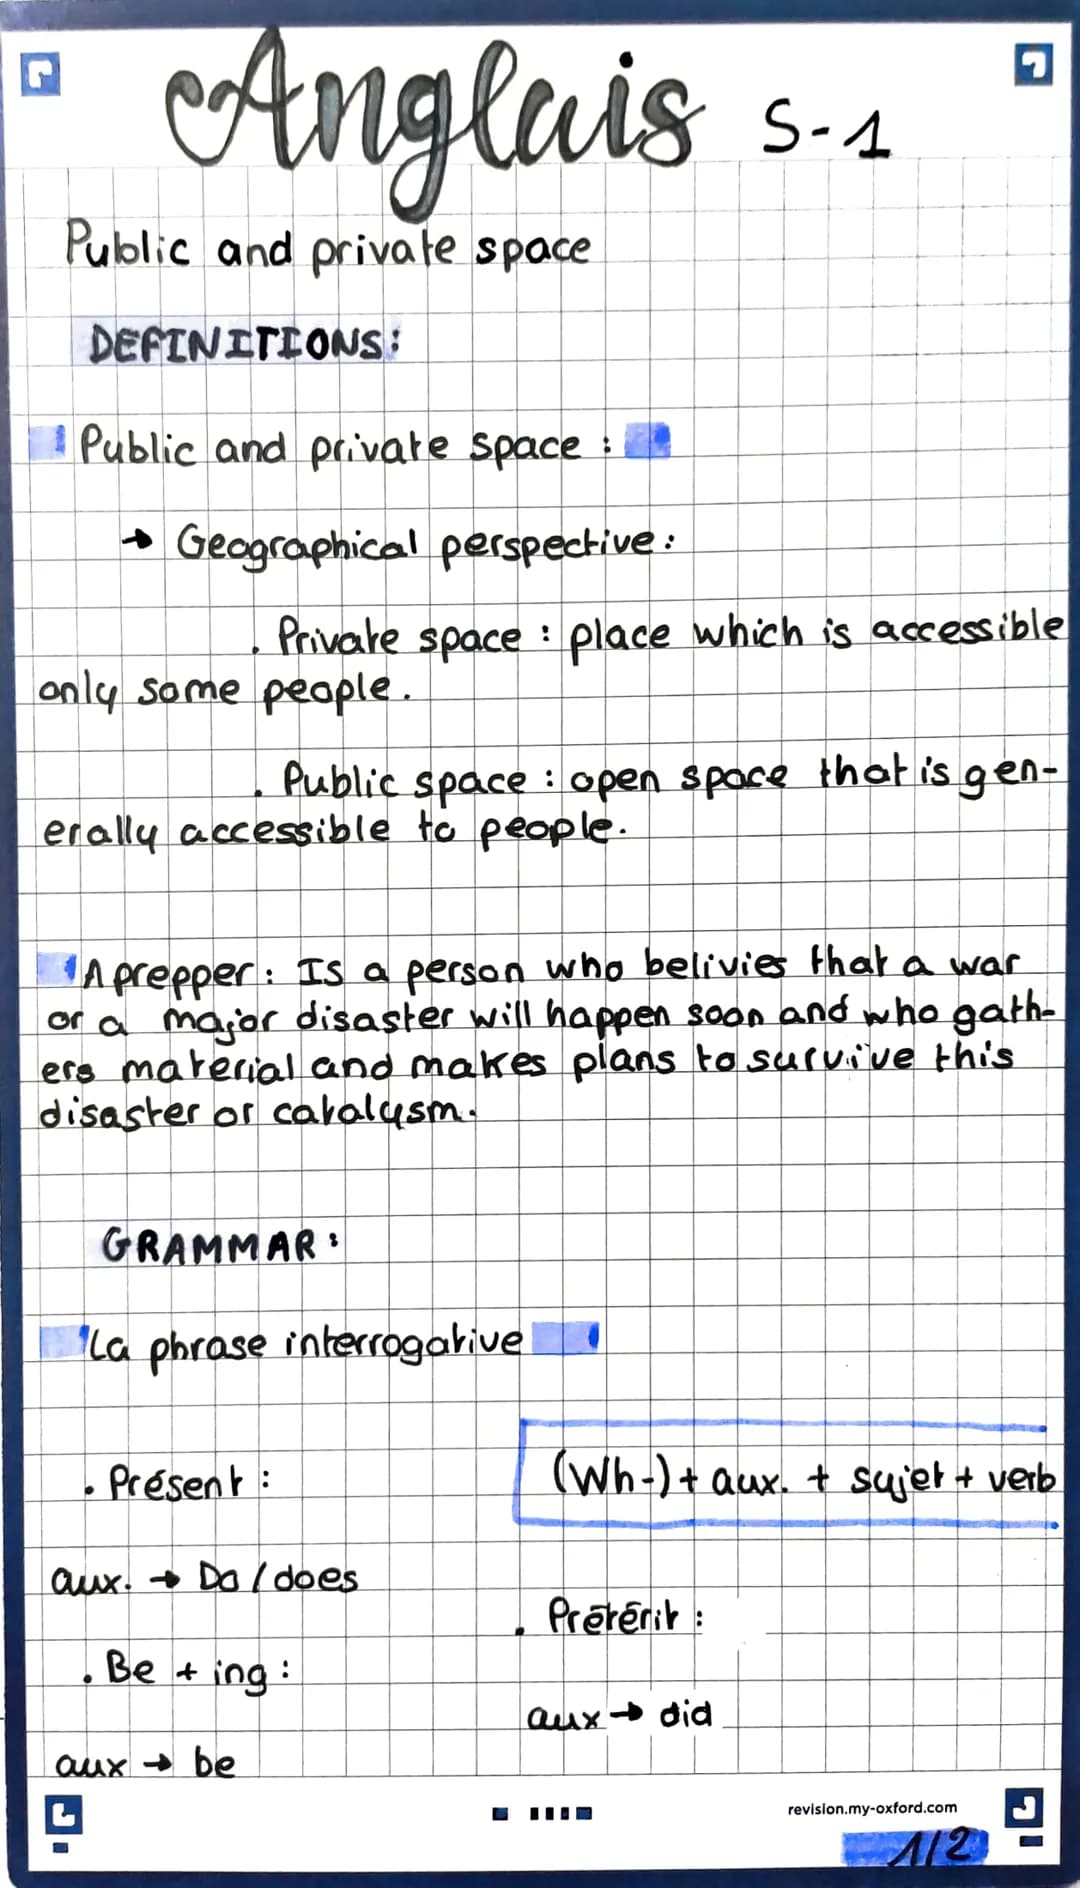 Anglais S-1
Public and private space
DEFINITIONS:
Public and private space :
→ Geographical perspective :
. Private space : place which is accessible
only some people.
. Public space : open space that is gen-
erally accessible to people.
A prepper : Is a person who belivies that a war
or a major disaster will happen soon and who gath-
ers material and makes plans to survive this
disaster or catalysm.
GRAMMAR :
La phrase interrogative
. Présent :
(Wh-) + aux. + sujet + verb
aux. → Do / does
. Prétérit :
. Be + ing :
aux → did
aux → be
revision.my-oxford.com
1/2